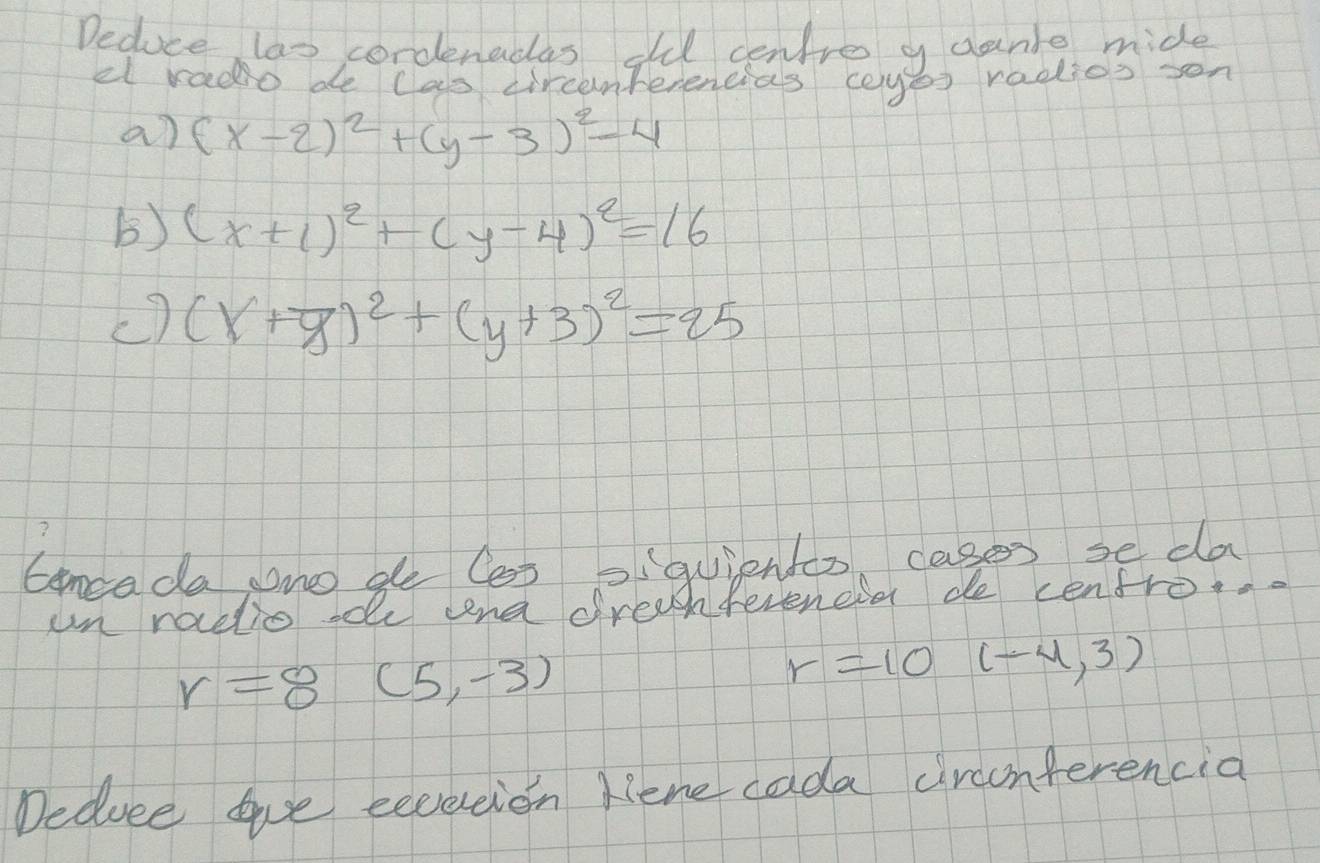 Deduce las cordenadas del centro y cuanto mide
el radio de las circunferencias cuyos radios son
a) (x-2)²+(y-3)²=4
b) (x+1)²+(y-4)²=16
c) (x+)²+(y+3)²=25
?
cada uno de los siguientes casos se da
un radio de una circunferencia de centro...
r=8 (5,-3) r=10 (-4,3)
Deduce que ecuación tiene cada circunferencia